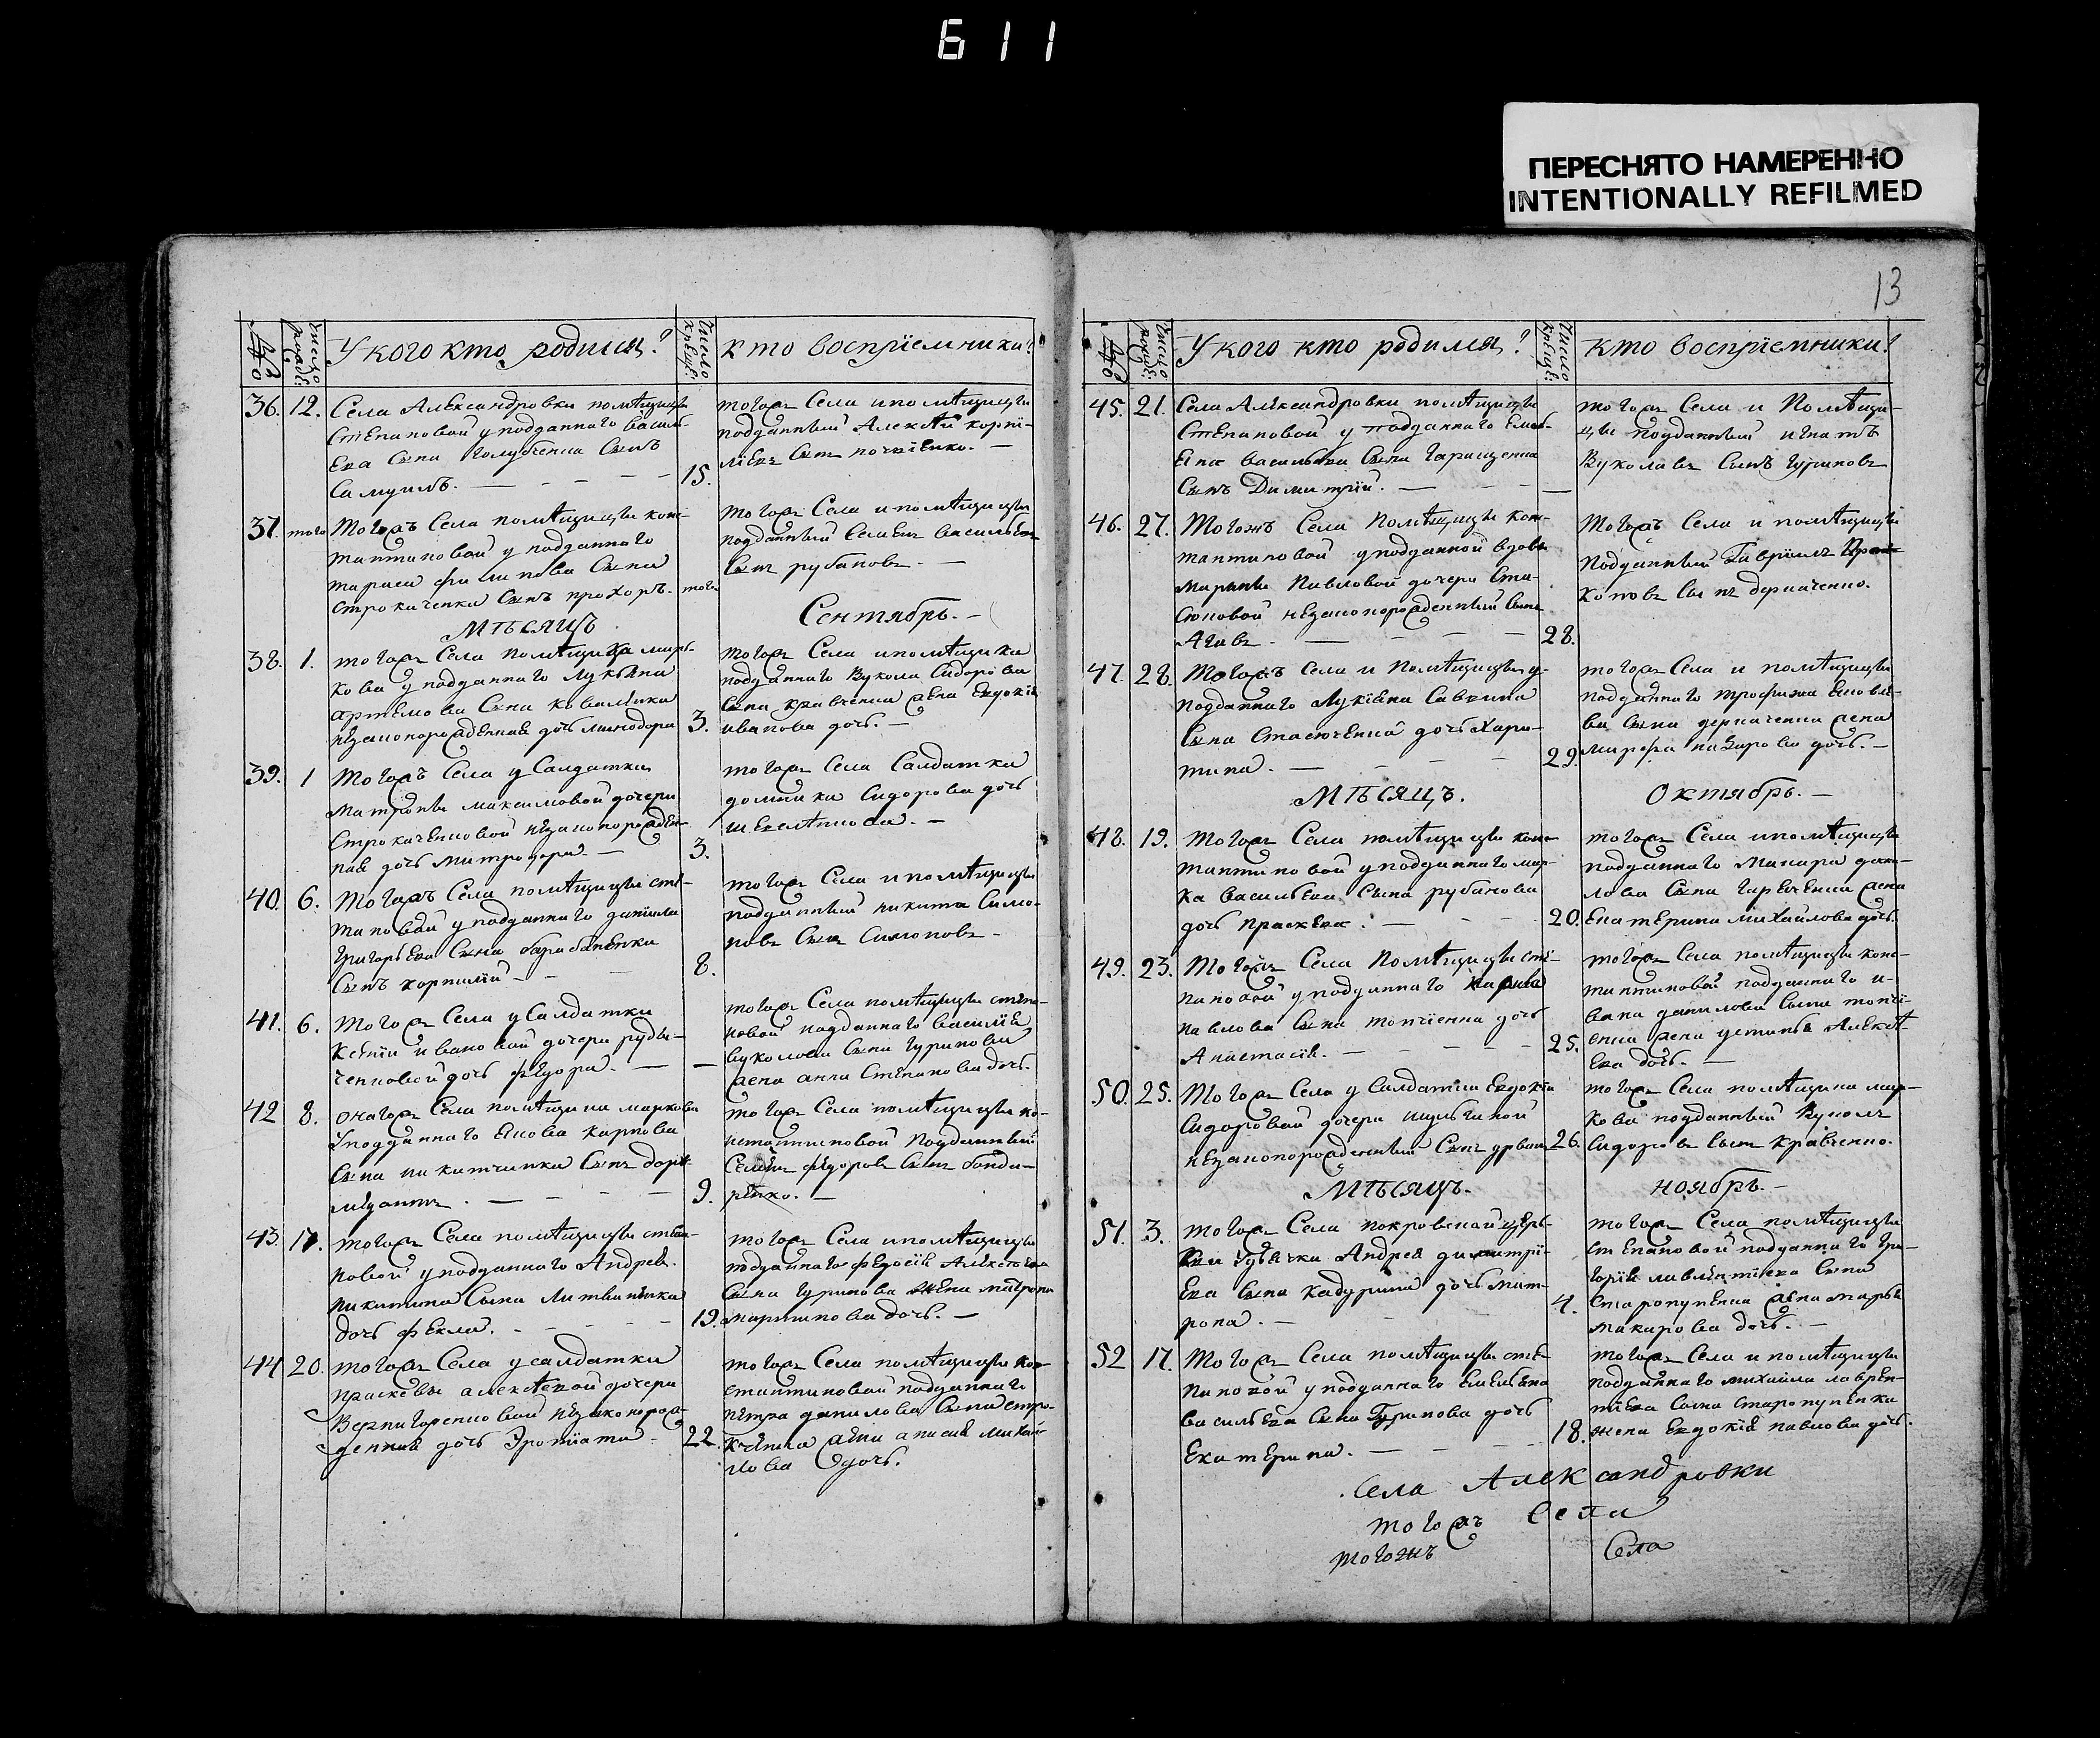 611
ПЕРЕСНЯТО НАМЕРЕННО
INTENTIONALLY REFILMED
13
№
число рожде:
У кого кто родился?
число креще:
кто восприемники?
36. 12. Села Александровки помѣщицы
Степановой у подданнаго Василь-
ева сына Голубченка сынъ
Самуилъ.
15.
тогожъ Села и помѣщицы
подданный Алексѣй корнї-
лїевъ сынъ
37. того Тогожъ Села помѣщицы конс-
тантиновой у подданнаго
тараса филипова сына
строкаченка сынъ прохоръ.
того
тогожъ Села и помѣщицы
подданный Семенъ васильевъ
сынъ рубановъ.
Мѣсяцъ Сентябрь.
38. 1. тогожъ Села помѣщика мар-
кова у подданнаго Лукьяна
артемова сына ковалика
незаконорожденная дочь минодора
3.
тогожъ Села и помѣщика
подданнаго Вукола Сидорова
сына кравченка жена Евдокїя
иванова дочь.
39. 1 Тогожъ Села у Салдатки
матроны максимовой дочери
Строкаченковой незаконорожден-
ная дочь митродора.
3.
тогожъ Села Салдатка
домника Сидорова дочь
40. 6. Тогожъ Села помѣщицы сте-
пановой у подданнаго данїила
григорьева сына барабаненка
сынъ корнилїй
8.
тогожъ Села и помѣщицы
подданный никита Симо-
новъ сынъ Симоновъ
41. 6. Тогожъ Села у Салдатки
Ксенїи ивановой дочери руды-
ченковой дочь федора.
тогожъ Села помѣщицы степа-
новой подданнаго василїя
вуколова сына гуринова
жена анна Степанова дочь.
42 8. онагожъ Села помѣщика маркова
У подданнаго Якова карпова
сына никитчинка сынъ дори-
медонтъ.
9.
тогожъ Села помѣщицы ко-
нстантиновой подданный
Семенъ федоровъ сынъ бонда-
ренко.
43. 17. тогожъ Села помѣщицы степа-
новой у подданнаго Андрея
никитина сына Литвиненка
дочь фекла.
19.
тогожъ Села и помѣщицы
подданнаго федосїя Алексеева
сына гуринова жена матрона
мартинова дочь.
44 20. тогожъ Села у салдатки
праскевы алексѣевой дочери
Вернигоренковой незаконорож-
денная дочь Эротїата
22.
тогожъ Села помѣщицы кон-
стантиновой подданнаго
петра данилова сына стро-
кченка жена анасия михай-
лова дочь.
№
число рожде:
У кого кто родился?
число креще:
кто восприемники?
45. 21. Села Александровки помѣщицы
Степановой у подданнаго Емел-
яна васильева сына Гаращенка
Сынъ Димитрїй.
тогожъ Села и Помѣщи-
цы подданный игнатъ
Вуколавъ сынъ гуриновъ
46. 27. Тогожъ Села Помѣщицы кон-
тантиновой у подданной вдовы
марины Павловой дочери Ста-
сюковой незаконорожденный сынъ
28.
Тогожъ Села и помѣщицы
Подданный Гаврїилъ Про-
коповъ сынъ деркаченко.
47. 28. Тогожъ Села и Помѣщицы у
подданнаго Лукїяна Саввина
сына Стасюченка дочь Хари-
тина.
29.
тогожъ Села и помѣщицы
подданнаго трофима Яковле-
ва сына деркаченка жена
марфа назарова дочь.
Мѣсяцъ. Октябрь.
48. 19. тогожъ Села помѣщицы конс-
тантиновой у подданнаго мар-
ка васильева сына рубанова
дочь праскева.
20.
тогожъ Села и помѣщицы
подданнаго Макара дани-
лова сына жена
Екатерина михайлова дочь.
49. 23. Тогожъ Села Помѣщицы сте-
пановой у подданнаго Карпа
павлова сына топчиенка дочь
Анастасїя.
25.
тогожъ Села помѣщицы конс-
тантиновой подданнаго и-
вана данилова сына топчї-
енка жена устинья Алексѣ-
ева дочь.
50. 25. Тогожъ Села у Салдатки Евдокїи
Сидоровой дочери
незаконорожденный сынъ
26.
тогожъ Села помѣщика мар-
кова подданный Вуколъ
Сидоровъ сынъ Кравченко.
Мѣсяцъ. ноябрь.
51. 3. тогожъ Села покровской церк-
ви у дьячка Андрея димитрї-
ева сына Кадурина дочь мат-
рона.
4.
тогожъ Села помѣщицы
степановой подданнаго гри-
горїя лаврентїева сына
старопупенка жена марья
макарова дочь.
52 17. Тогожъ Села помѣщицы сте-
пановой у подданнаго Емельяна
васильева сына Гуринова дочь
Екатерина.
18.
тогожъ Села и помѣщицы
подданнаго михайла лаврен-
тїева сына старопупенка
жена Евдокїя павлова дочь.
Села Александровки
тогожъ Села
тогожъ Села